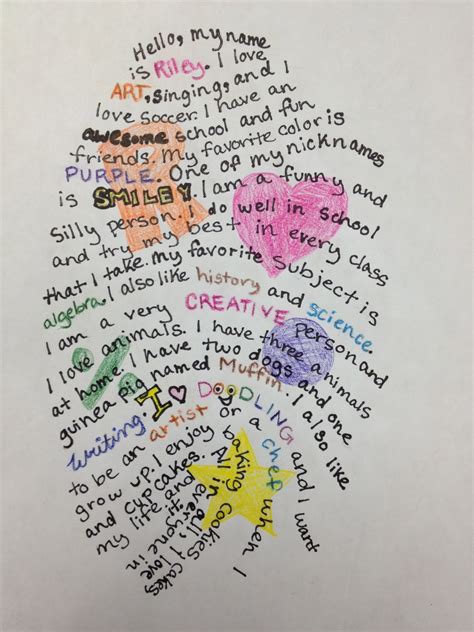 Hello, my name
is Riley. I love
ART, singing, and I
love soccer. I have an
awesome school and fun
friends. My favorite color is
PURPLE. One of my nicknames
is SMILEY. I am a funny and
Silly person. i do well in school
and try my best in every class
that I take. My favorite Subject is
algebra. I also like history and science.
I am a very CREATIVE person and
I love animals. I have three animals
at home. I have two dogs and one
guinea pig named Muffin. I also like
writing. I ♥ DOODLING and I want
to be an artist or a chef when I
grow up. I enjoy baking cookies, cakes,
and cupcakes. All in all, I love
my life and everyone in